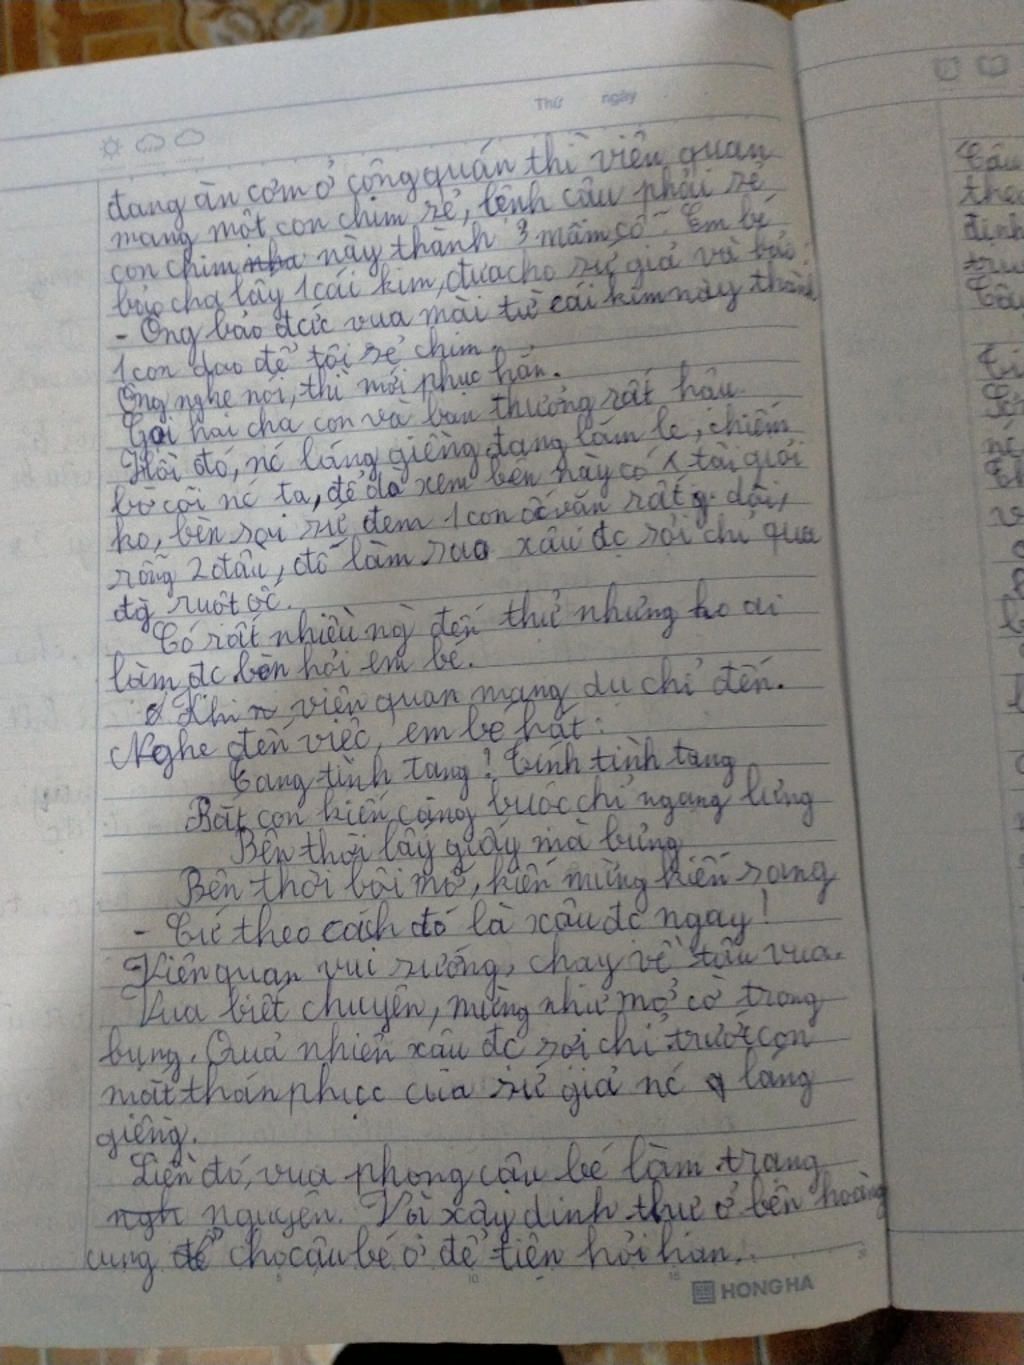 Thứ ngày
đang ăn cơm ở công quán thì viên quan
mang một con chim sẻ, lệnh cậu phải sẻ
con chim này thành 3 mâm cỗ. Em bé
bảo cha lấy 1 cái kim, đưa cho sứ giả và bảo:
- Ông bảo đức vua mài từ cái kim này thành
1 con dao để tôi sẻ chim.
Ông nghe nói, thì mới phục hẳn.
Gọi hai cha con và ban thưởng rất hậu.
Hồi đó, nc láng giềng đang lăm le, chiếm
bờ cõi nc ta, để dò xem bên này có tài giỏi
ko, bèn sai sứ đem 1 con ốc vặn rất dài,
rỗng 2 đầu, đố làm sao xâu đc sợi chỉ qua
ruột ốc.
Có rất nhiều ng đến thử nhưng ko ai
làm đc bèn hỏi em bé.
Khi viên quan mang dụ chỉ đến.
Nghe đến việc, em bé hát:
Tang tình tang! Tính tình tang
Bắt con kiến càng buộc chỉ ngang lưng
Bên thời lấy giấy mà bưng
Bên thời bôi mỡ, kiến mừng kiến sang
- Cứ theo cách đó là xâu đc ngay!
Viên quan vui sướng, chạy về tâu vua.
Vua biết chuyện, mừng như mở cờ trong
bụng. Quả nhiên xâu đc sợi chỉ trước con
mắt thán phục của sứ giả nc láng
giềng.
Liền đó, vua phong cậu bé làm trạng
nguyên. Và xây dinh thự ở bên hoàng
cung cho cậu bé ở để tiện hỏi han.
5 10 15 20
HONG HA